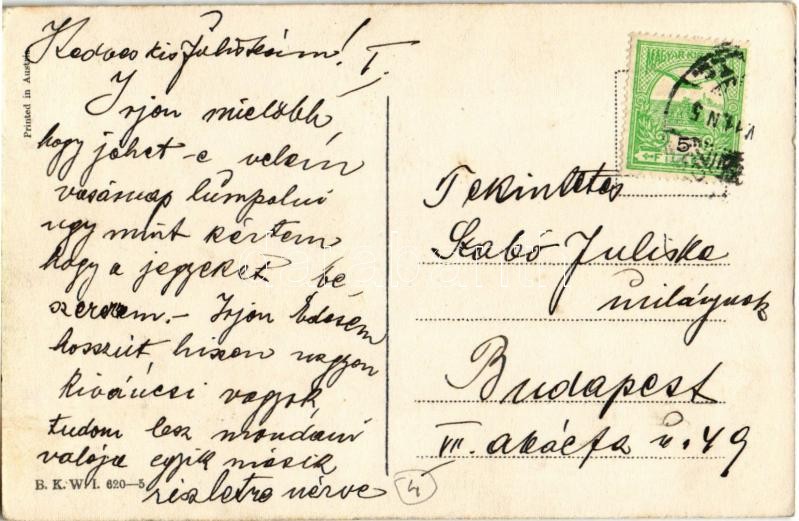 Kedves kis Juliskám! I.
Irjon mielőbb
hogy jöhet-e velem
vasárnap lumpolni
ugy mint kértem
hogy a jegyeket be
szerezzem.- Irjon Édesem
hosszút hiszen nagyon
kiváncsi vagyok
tudom lesz mondani
valója egyik másik
részletre nézve
4
Printed in Austria
B. K. W. I. 620-5
MAGYAR KIR
5
Tekintetes
Szabó Juliska
Budapest
VII. akácfa u. 49